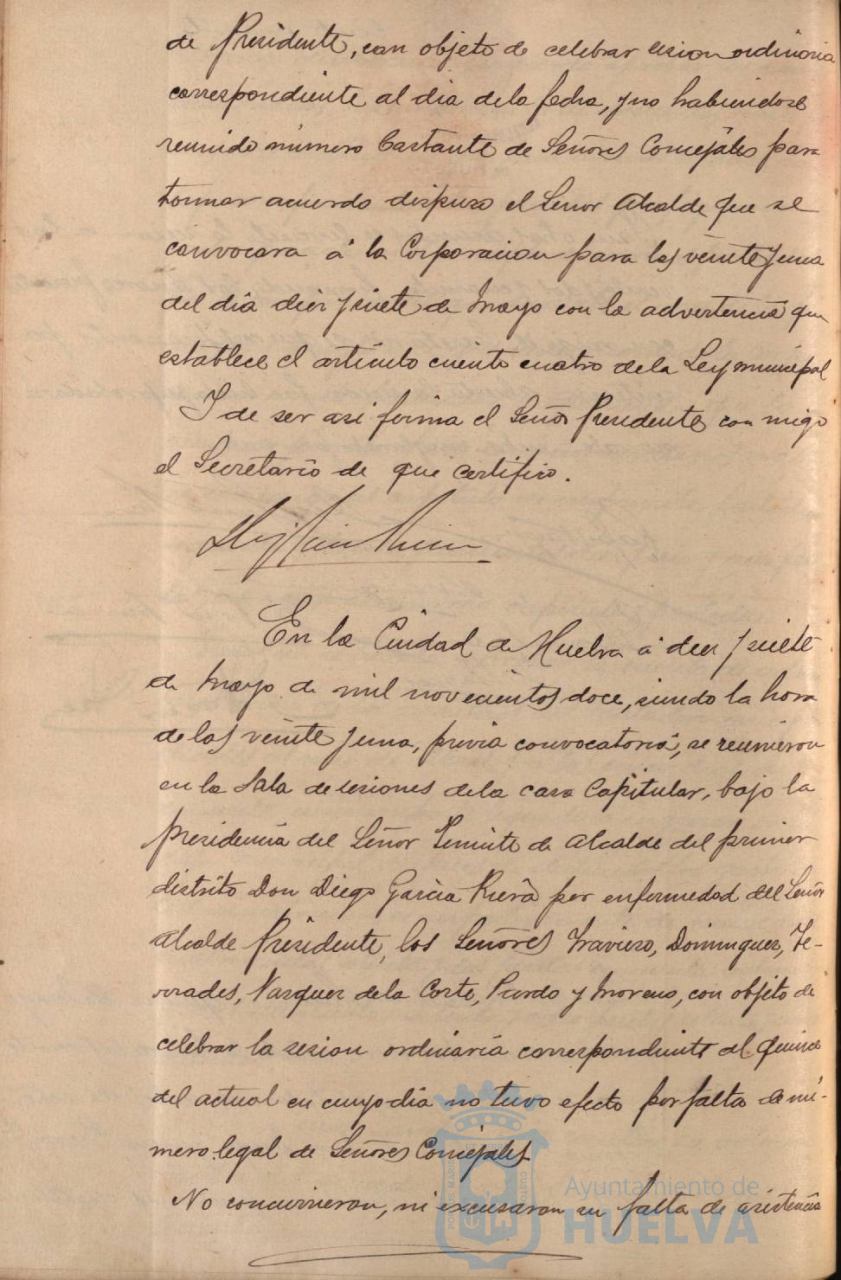 de Presidente, con objeto de celebrar sesion ordinaria
correspondiente al dia de la fecha, y no habiendose
reunido número bastante de Señores Concejales para
tomar acuerdo dispuso el Señor Alcalde que se
convocara á la Corporacion para las veinte y una
del dia diez y siete de Mayo con la advertencia que
establece el artículo ciento cuatro de la Ley municipal
Y de ser asi firma el Señor Presidente con migo
el Secretario de que certifico.
En la Ciudad de Huelva á diez y siete
de Mayo de mil novecientos doce, siendo la hora
de las veinte y una, previa convocatoria, se reunieron
en la Sala de sesiones de la casa Capitular, bajo la
presidencia del Señor Teniente de Alcalde del primer
distrito Don Diego Garcia Riera por enfermedad del Señor
Alcalde Presidente, los Señores Travieso, Dominguez, Te-
rrades, Vazquez de la Corte, Pardo y Moreno, con objeto de
celebrar la sesion ordinaria correspondiente al quince
del actual en cuyo dia no tuvo efecto por falta de nú-
mero legal de Señores Concejales
No concurrieron, ni excusaron su falta de asistencia
Ayuntamiento de
HUELVA